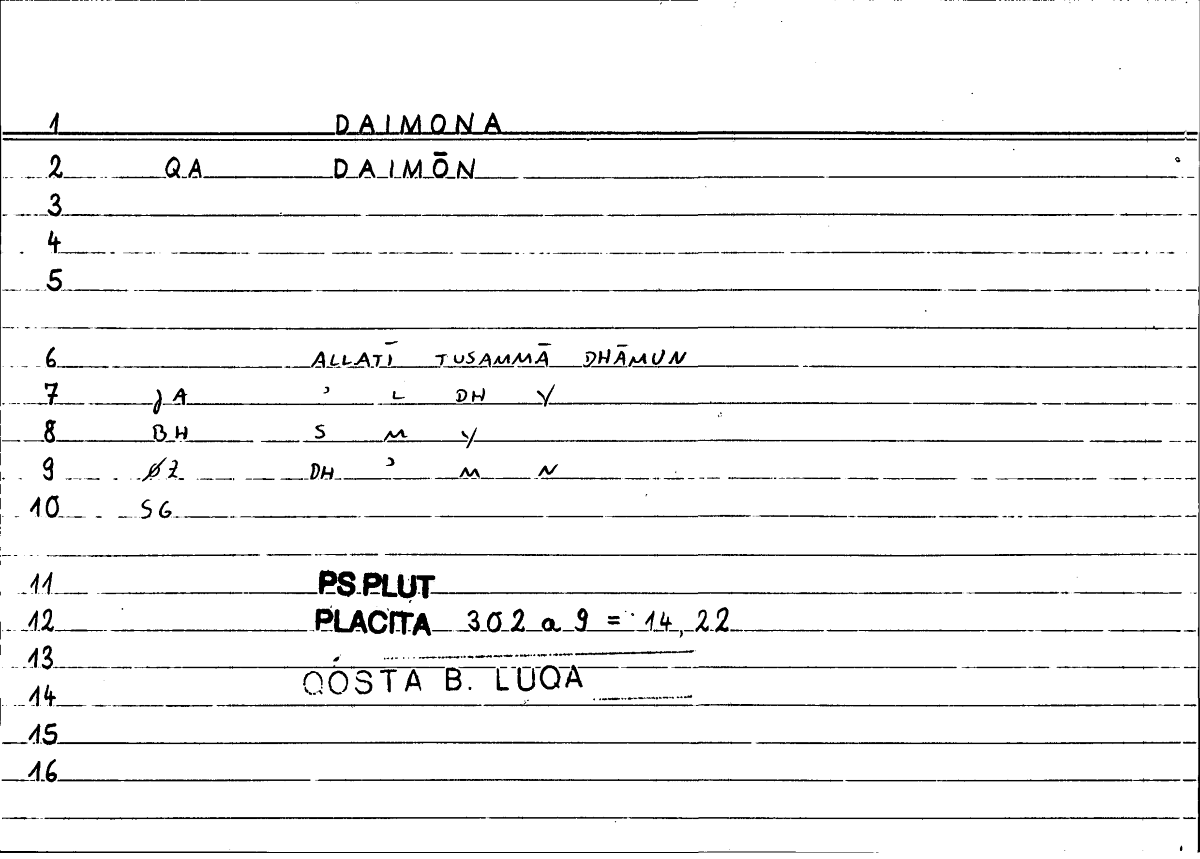 1 DAIMONA
2 QA DAIMŌN
3
4
5
6 ALLATĪ TUSAMMĀ DHĀMUN
7 JA ʾ L DH Y
8 BH S M Y
9 ØZ DH ʾ M N
10 SG
11 PS.PLUT
12 PLACITA 302 a 9 = 14,22
13
QOSTA B. LUQA
14
15
16